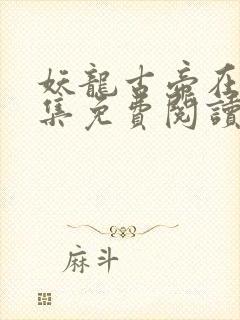 妖龍古帝在
集免費閱讀
麻斗